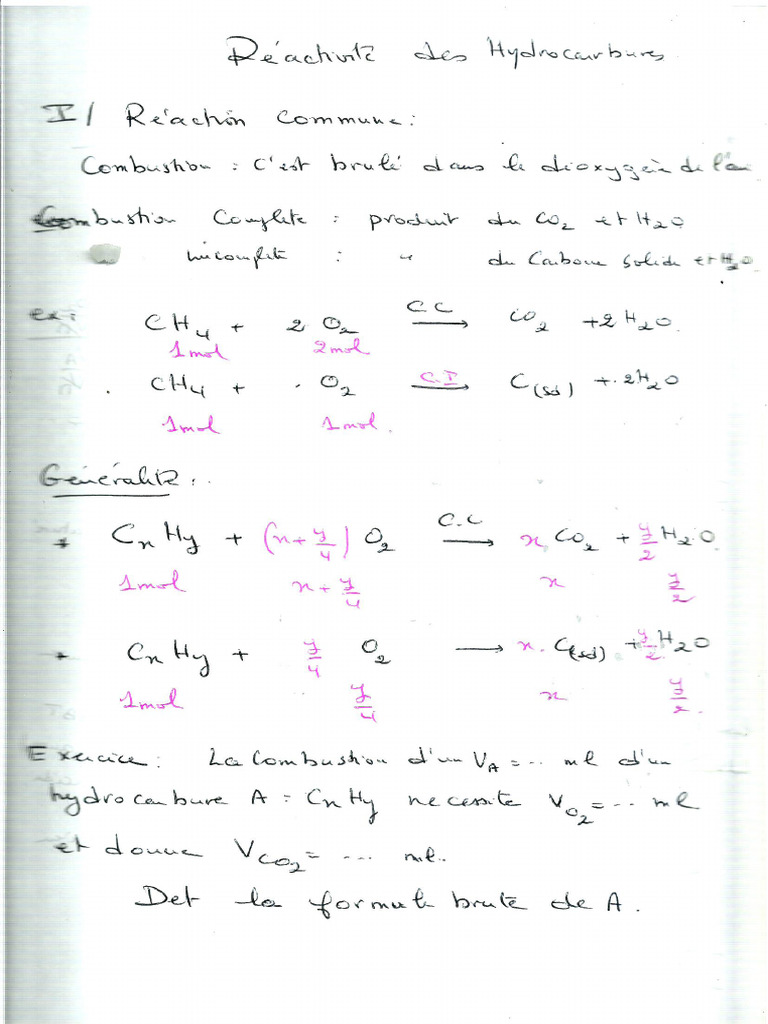 Réactivité des Hydrocarbures
I/ Réaction Commune :
Combustion : C'est brulé dans le dioxygène de l'air
Combustion Complete : produit du CO₂ et H₂O
incomplete : " du Carbone solide et H₂O
ex: CH₄ + 2 O₂ C.C → CO₂ + 2 H₂O.
1mol 2mol
. CH₄ + . O₂ C.I → C(sd) + . 2H₂O
1mol 1mol.
Généralité :
* CxHy + (x + y/4) O₂ C.C → x CO₂ + y/2 H₂O
1mol x + y/4 x y/2
* CxHy + y/4 O₂ → x . C(sd) + y/2 H₂O
1mol y/4 x y/2.
Exercice : La Combustion d'un V_A = ... ml d'un
hydrocarbure A = CxHy necessite V_O₂ = ... ml
et donne V_CO₂ = ... ml.
Det la formule brute de A.